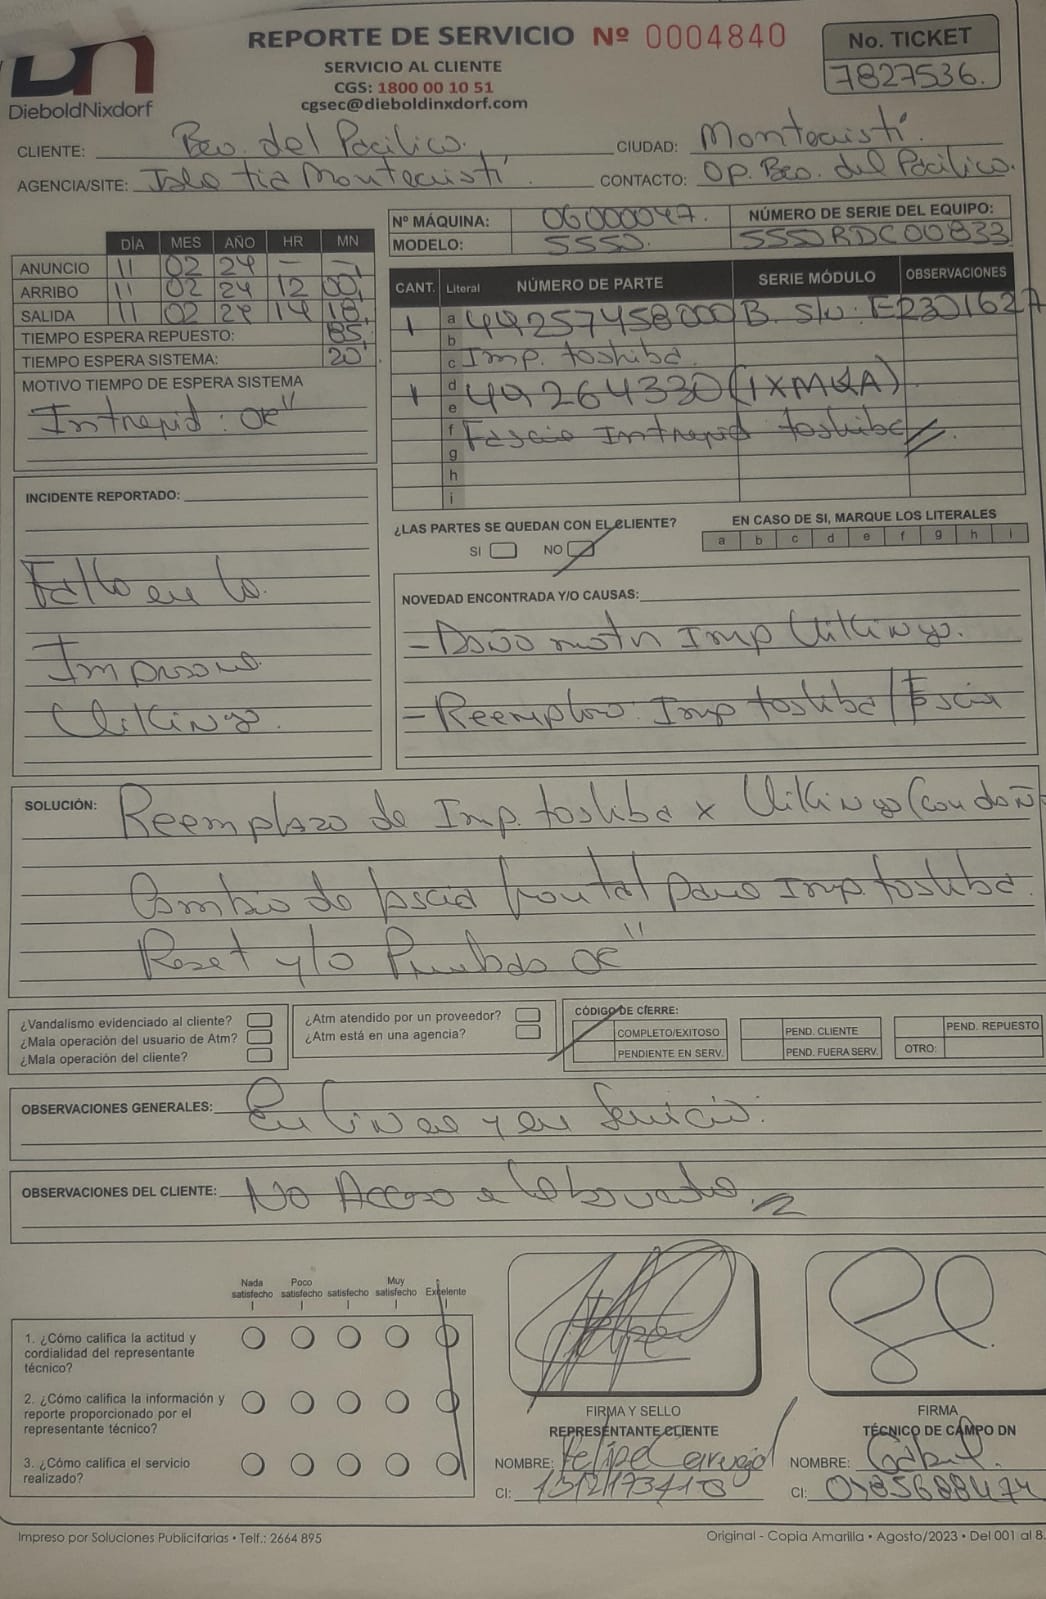 REPORTE DE SERVICIO Nº 0004840
SERVICIO AL CLIENTE
CGS: 1800 00 10 51
cgsec@dieboldinxdorf.com
No. TICKET
7827536.
DieboldNixdorf
CLIENTE: Bco. del Pacifico.
CIUDAD: Montecristi.
AGENCIA/SITE: Isla tia Montecristi
CONTACTO: Op. Bco. del Pacifico.
Nº MÁQUINA: 06000047.
NÚMERO DE SERIE DEL EQUIPO:
MODELO: 5550.
5550RDC00833
DÍA MES AÑO HR MN
ANUNCIO 11 02 24 — —
ARRIBO 11 02 24 12 00'
SALIDA 11 02 24 14 18'
TIEMPO ESPERA REPUESTO: 85'
TIEMPO ESPERA SISTEMA: 20'
MOTIVO TIEMPO DE ESPERA SISTEMA
Intrepid: OK"
CANT. Literal NÚMERO DE PARTE SERIE MÓDULO OBSERVACIONES
1 a 44257458000B. S/N: E2301627
b
c Imp. toshiba.
1 d 49264330 (1XMKA)
e
f Fascia Intrepid toshiba
g
h
i
INCIDENTE REPORTADO:
Fallo en la
Impresora
Vikingo.
¿LAS PARTES SE QUEDAN CON EL CLIENTE?
SI NO
EN CASO DE SI, MARQUE LOS LITERALES
a b c d e f g h i
NOVEDAD ENCONTRADA Y/O CAUSAS:
- Daño motor Imp Vikingo.
- Reemplazo: Imp toshiba / Fascia
SOLUCIÓN: Reemplazo de Imp. toshiba x Vikingo (con dañ
Cambio de fascia frontal para Imp. toshiba.
Reset y/o Pruebas OK"
¿Vandalismo evidenciado al cliente?
¿Mala operación del usuario de Atm?
¿Mala operación del cliente?
¿Atm atendido por un proveedor?
¿Atm está en una agencia?
CÓDIGO DE CIERRE:
COMPLETO/EXITOSO
PENDIENTE EN SERV.
PEND. CLIENTE
PEND. FUERA SERV.
PEND. REPUESTO
OTRO:
OBSERVACIONES GENERALES: En linea y en Servicio.
OBSERVACIONES DEL CLIENTE: No Acceso a
Nada satisfecho Poco satisfecho satisfecho Muy satisfecho Excelente
1. ¿Cómo califica la actitud y
cordialidad del representante
técnico?
2. ¿Cómo califica la información y
reporte proporcionado por el
representante técnico?
3. ¿Cómo califica el servicio
realizado?
FIRMA Y SELLO
REPRESENTANTE CLIENTE
NOMBRE: Felipe
CI: 1312173418
FIRMA
TÉCNICO DE CAMPO DN
NOMBRE: Gabriel.
CI: 0985688474
Impreso por Soluciones Publicitarias • Telf.: 2664 895
Original - Copia Amarilla • Agosto/2023 • Del 001 al 8.